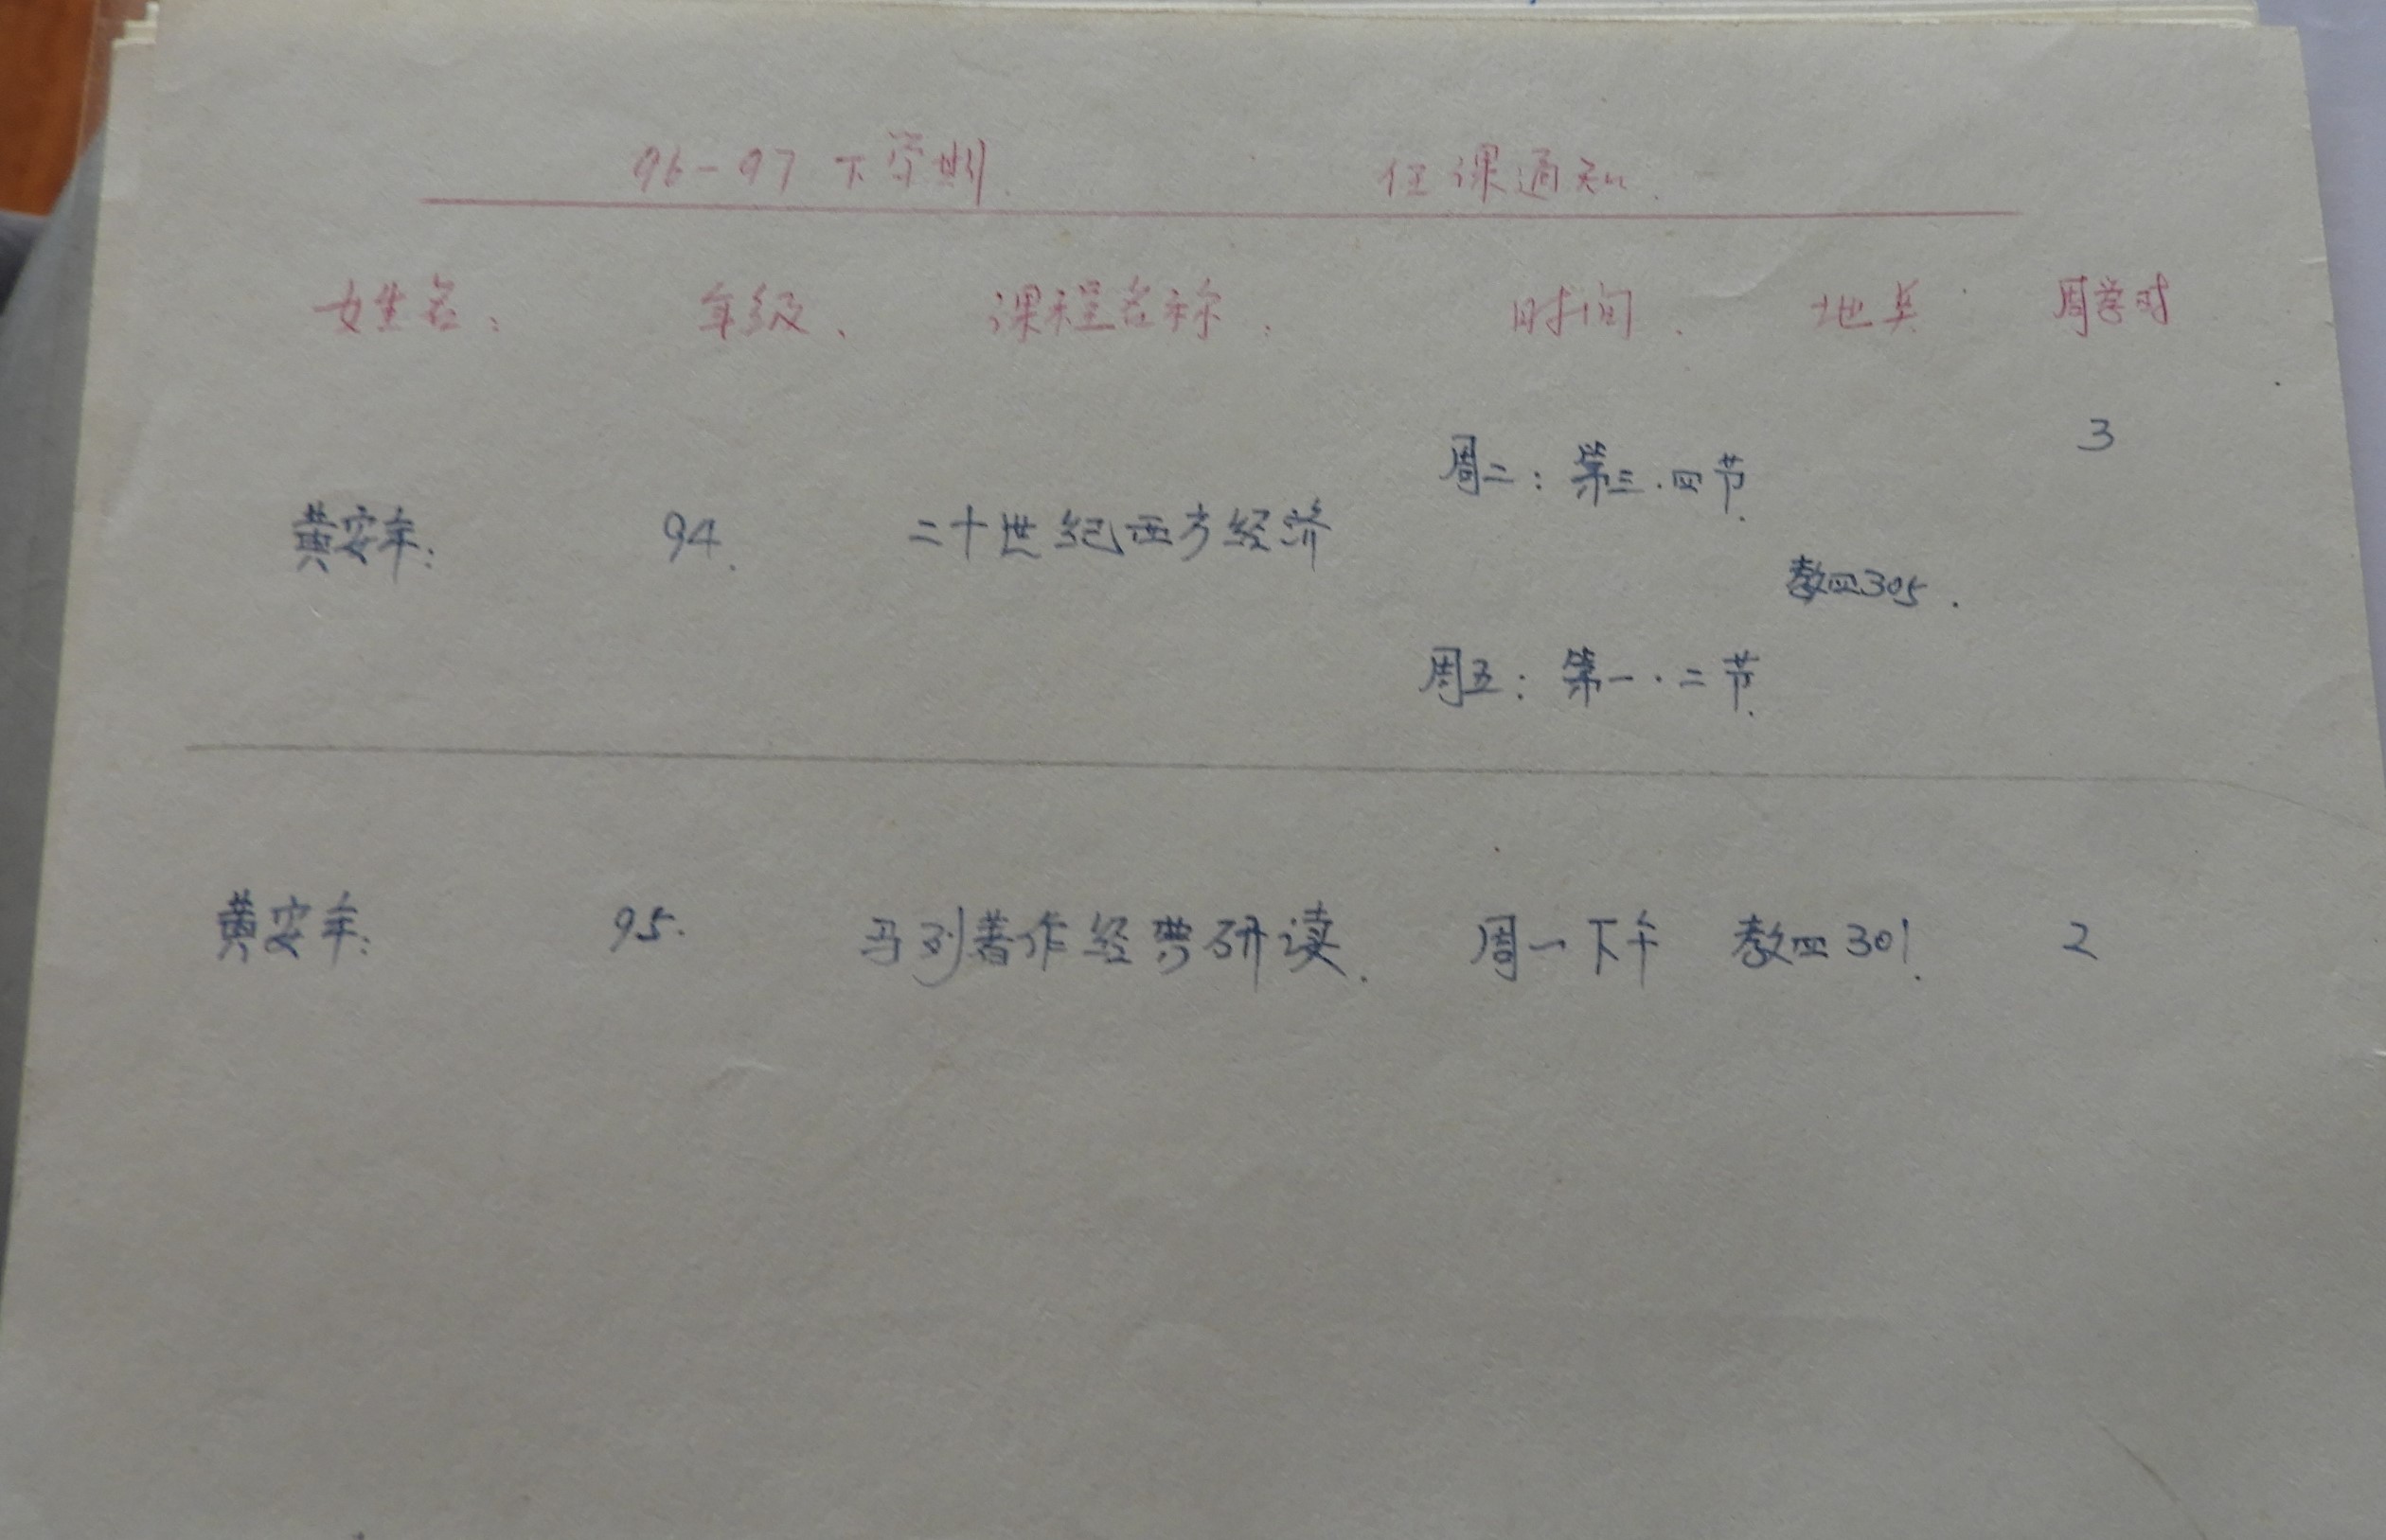 96-97下学期 任课通知.
姓名: 年级、 课程名称: 时间. 地点 周学时
周二:第三.四节. 3
黄安年: 94. 二十世纪西方经济
教四305.
周五:第一.二节.
黄安年: 95. 马列著作经典研读. 周一下午 教四301. 2